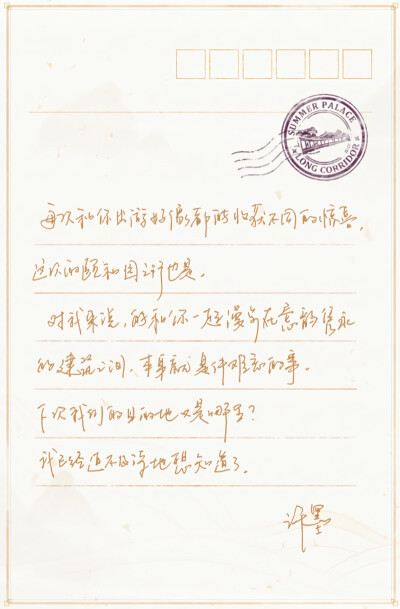 SUMMER PALACE
LONG CORRIDOR
每次和你出游好像都能收获不同的惊喜，
这次的颐和园之行也是。
对我来说，能和你一起漫步在意韵隽永
的建筑之间，本身就是件难忘的事。
下次我们的目的地又是哪里？
我已经迫不及待地想知道了。
许墨